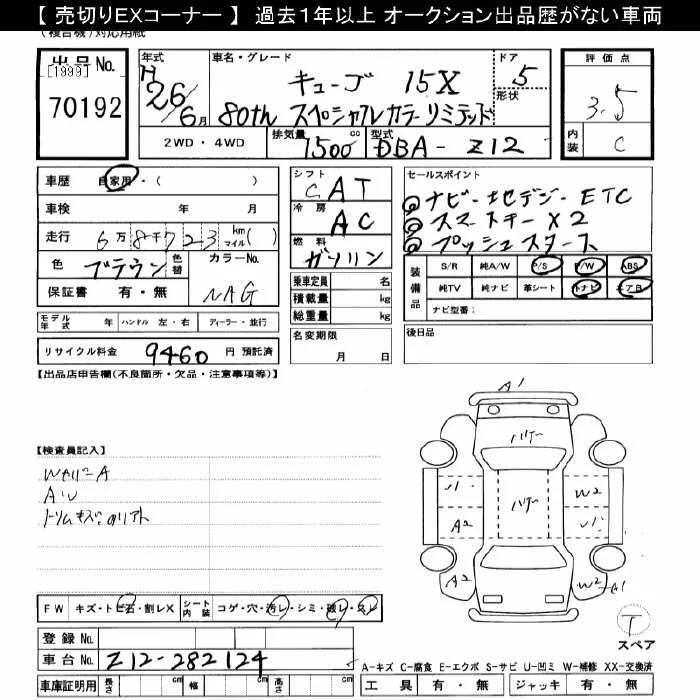 【 売切りEXコーナー 】 過去1年以上 オークション出品歴がない車両
(複合機)対応用紙
出品No.
[1999]
70192
年式
H 26/6月
車名・グレード
キューブ 15X
80th スペシャルカラーリミテッド
ドア
5
形状
評価点
3.5
内装
C
2WD・4WD
排気量
1500 cc
型式
DBA-Z12
車歴
自家用・( )
車検 年 月
走行
6万8千723 km マイル( )
色
ブラウン
色替
カラーNo.
NAG
保証書 有・無
シフト
C AT
冷房
AC
燃料
ガソリン
乗車定員 名
積載量 kg
総重量 kg
セールスポイント
ナビ・地デジ・ETC
スマートキーX2
プッシュスタート
装備品
S/R 純A/W P/S P/W ABS
純TV 純ナビ 革シート ナビ エアB
ナビ型番:
モデル年式 年 ハンドル 左・右 ディーラー・並行
リサイクル料金 9460 円 預託済
名変期限
月 日
後日品
【出品店申告欄(不良箇所・欠品・注意事項等)】
【検査員記入】
A1
A2
W2
W2
A2
A1
FW キズ・トビ石・割レX
シート内装
コゲ・穴・汚レ・シミ・破レ・スレ
登録No.
車台No. Z12-282124
車庫証明用 長さ cm 幅 cm 高さ cm
T
スペア
A-キズ C-腐食 E-エクボ S-サビ U-凹ミ W-補修 XX-交換済
工具 有・無 ジャッキ 有・無